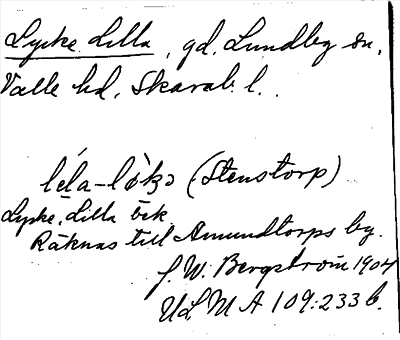 Lycke, Lilla, gd. Lundby sn,
Valle hd, Skarab. l.
léla-lø̀kə (Stenstorp)
Lycke, Lilla öek.
Räknas till Amundtorps by.
J. W. Bergström 1904
ULMA 109:233 b.